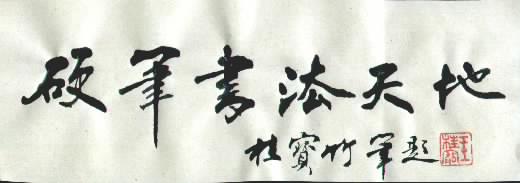 硬筆書法天地
桂寶竹筆題